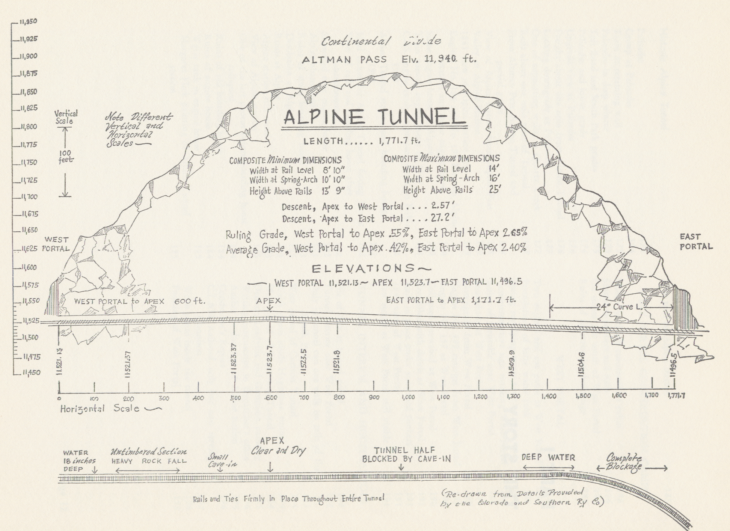 Continental
ALTMAN PASS Elv. 11,940. ft.
ALPINE TUNNEL
LENGTH...... 1,771.7 ft.
COMPOSITE Minimum DIMENSIONS
Width at Rail Level 8' 10"
Width at Spring-Arch 10' 10"
Height Above Rails 13' 9"
COMPOSITE Maximum DIMENSIONS
Width at Rail Level 14'
Width at Spring-Arch 16'
Height Above Rails 25'
Descent, Apex to West Portal .... 2.57'
Descent, Apex to East Portal .... 27.2'
Ruling Grade, West Portal to Apex .55%, East Portal to Apex 2.65%
Average Grade, West Portal to Apex .42%, East Portal to Apex 2.40%
ELEVATIONS~
WEST PORTAL 11,521.13 — APEX 11,523.7 — EAST PORTAL 11,496.5
WEST PORTAL to APEX 600 ft.
APEX
EAST PORTAL to APEX 1,171.7 ft.
24° Curve L.
WEST
PORTAL
EAST
PORTAL
Vertical
Scale
100
feet
Note Different
Vertical and
Horizontal
Scales
11,950
11,925
11,900
11,875
11,850
11,825
11,800
11,775
11,750
11,725
11,700
11,675
11,650
11,625
11,600
11,575
11,550
11,525
11,500
11,575
11,450
11521.13
11521.57
11523.37
11523.7
11521.8
11509.9
11504.6
11496.5
0 100 200 300 400 500 600 700 800 900 1,000 1,100 1,200 1,300 1,400 1,500 1,600 1,700 1,771.7
Horizontal Scale
WATER
18 inches
DEEP
Untimbered Section
HEAVY ROCK FALL
Small
Cave-in
APEX
Clear and Dry
TUNNEL HALF
BLOCKED BY CAVE-IN
DEEP WATER
Complete
Blockage
Rails and Ties Firmly in Place Throughout Entire Tunnel
(Re-drawn from Details Provided
by the Colorado and Southern Ry Co)